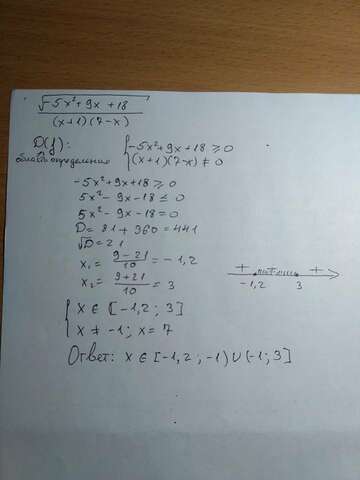 √-5x²+9x+18
(x+1)(7-x)
D(f):
область определения
{-5x²+9x+18 ≥ 0
(x+1)(7-x) ≠ 0
-5x²+9x+18 ≥ 0
5x²-9x-18 ≤ 0
5x²-9x-18=0
D= 81+360=441
√D=21
x₁ = 9-21/10 = -1,2
x₂ = 9+21/10 = 3
+ - +
-1,2 3
{x ∈ [-1,2; 3]
x ≠ -1; x= 7
Ответ: x ∈ [-1,2; -1) ∪ (-1; 3]